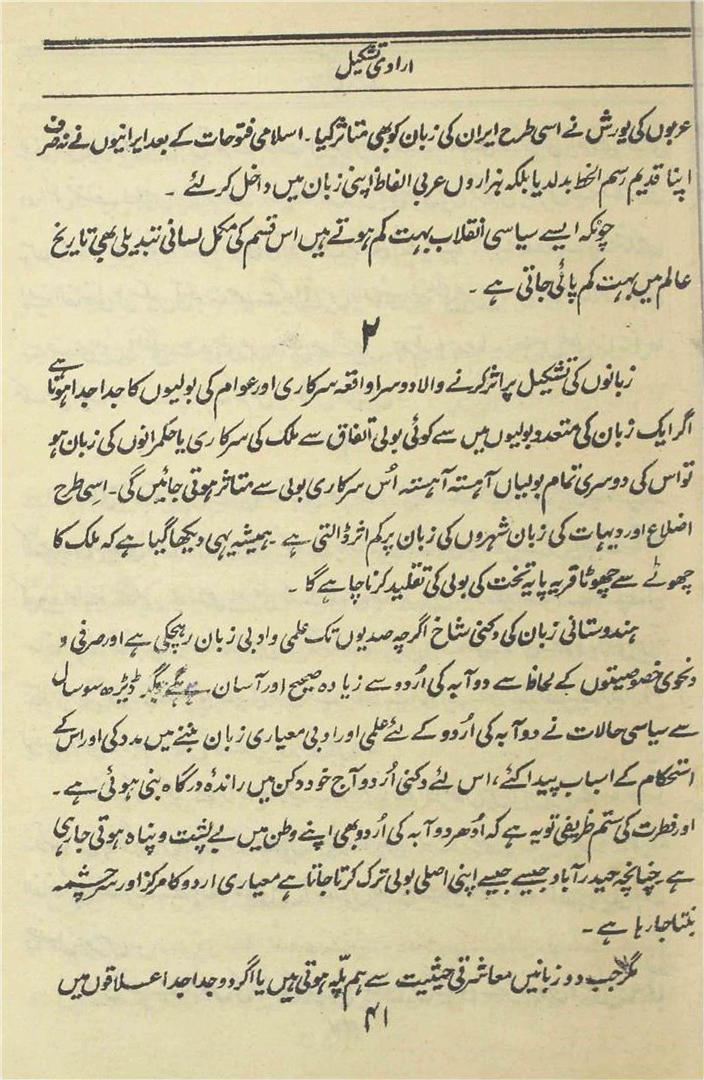 ارادی تشکیل
عربوں کی یورش نے اسی طرح ایران کی زبان کو بھی متاثر کیا۔ اسلامی فتوحات کے بعد ایرانیوں نے نہ صرف
اپنا قدیم رسم الخط بدلدیا بلکہ ہزاروں عربی الفاظ اپنی زبان میں داخل کرلئے ۔
چونکہ ایسے سیاسی انقلاب بہت کم ہوتے ہیں اس قسم کی مکمل لسانی تبدیلی بھی تاریخ
عالم میں بہت کم پائی جاتی ہے ۔
۲
زبانوں کی تشکیل پر اثر کرنے والا دوسرا واقعہ سرکاری اور عوام کی بولیوں کا جدا جدا ہوتا ہے
اگر ایک زبان کی متعدد بولیوں میں سے کوئی بولی اتفاق سے ملک کی سرکاری یا حکمرانوں کی زبان ہو
تو اس کی دوسری تمام بولیاں آہستہ آہستہ اُس سرکاری بولی سے متاثر ہوتی جائیں گی۔ اسِی طرح
اضلاع اور دیہات کی زبان شہروں کی زبان پر کم اثر ڈالتی ہے ۔ ہمیشہ یہی دیکھا گیا ہے کہ ملک کا
چھوٹے سے چھوٹا قریہ پایہ تخت کی بولی کی تقلید کرنا چاہے گا ۔
ہندوستانی زبان کی دکنی شاخ اگرچہ صدیوں تک علمی و ادبی زبان رہچکی ہے اور صرفی و
ونحوی خصوصیتوں کے لحاظ سے دوآبہ کی اُردو سے زیادہ صحیح اور آسان ہے مگر ڈیڑھ سو سال
سے سیاسی حالات نے دوآبہ کی اُردو کے لئے علمی اور ادبی معیاری زبان بننے میں مدد کی اور اس کے
استحکام کے اسباب پیدا کئے، اس لئے دکنی اُردو آج خود دکن میں راندۂ درگاہ بنی ہوئی ہے۔
اور فطرت کی ستم ظریفی تو یہ ہے کہ اُدھر دوآبہ کی اُردو بھی اپنے وطن میں بے پشت و پناہ ہوتی جارہی
ہے چنانچہ حیدرآباد جیسے جیسے اپنی اصلی بولی ترک کرتا جاتا ہے معیاری اردو کا مرکز اور سرچشمہ
بنتا جارہا ہے ۔
مگر جب دو زبانیں معاشرتی حیثیت سے ہم پلّہ ہوتی ہیں یا اگر دو جدا جدا علاقوں میں
۴۱